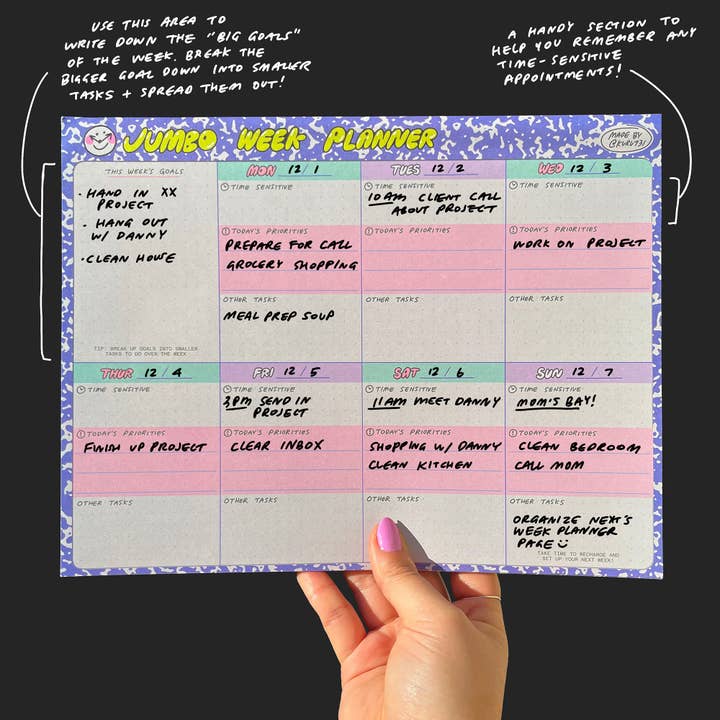 USE THIS AREA TO
WRITE DOWN THE "BIG GOALS"
OF THE WEEK. BREAK THE
BIGGER GOAL DOWN INTO SMALLER
TASKS + SPREAD THEM OUT!
A HANDY SECTION TO
HELP YOU REMEMBER ANY
TIME-SENSITIVE
APPOINTMENTS!
JUMBO WEEK PLANNER
MADE BY
@KURU731
THIS WEEK'S GOALS
• HAND IN XX
PROJECT
• HANG OUT
W/ DANNY
• CLEAN HOUSE
TIP: BREAK UP GOALS INTO SMALLER
TASKS TO DO OVER THE WEEK
MON 12/1
TIME SENSITIVE
TODAY'S PRIORITIES
PREPARE FOR CALL
GROCERY SHOPPING
OTHER TASKS
MEAL PREP SOUP
TUES 12/2
TIME SENSITIVE
10AM CLIENT CALL
ABOUT PROJECT
TODAY'S PRIORITIES
OTHER TASKS
WED 12/3
TIME SENSITIVE
TODAY'S PRIORITIES
WORK ON PROJECT
OTHER TASKS
THUR 12/4
TIME SENSITIVE
TODAY'S PRIORITIES
FINISH UP PROJECT
OTHER TASKS
FRI 12/5
TIME SENSITIVE
3PM SEND IN
PROJECT
TODAY'S PRIORITIES
CLEAR INBOX
OTHER TASKS
SAT 12/6
TIME SENSITIVE
11AM MEET DANNY
TODAY'S PRIORITIES
SHOPPING W/ DANNY
CLEAN KITCHEN
OTHER TASKS
SUN 12/7
TIME SENSITIVE
MOM'S BAY!
TODAY'S PRIORITIES
CLEAN BEDROOM
CALL MOM
OTHER TASKS
ORGANIZE NEXT'S
WEEK PLANNER
PAGE
TAKE TIME TO RECHARGE AND
SET UP YOUR NEXT WEEK!